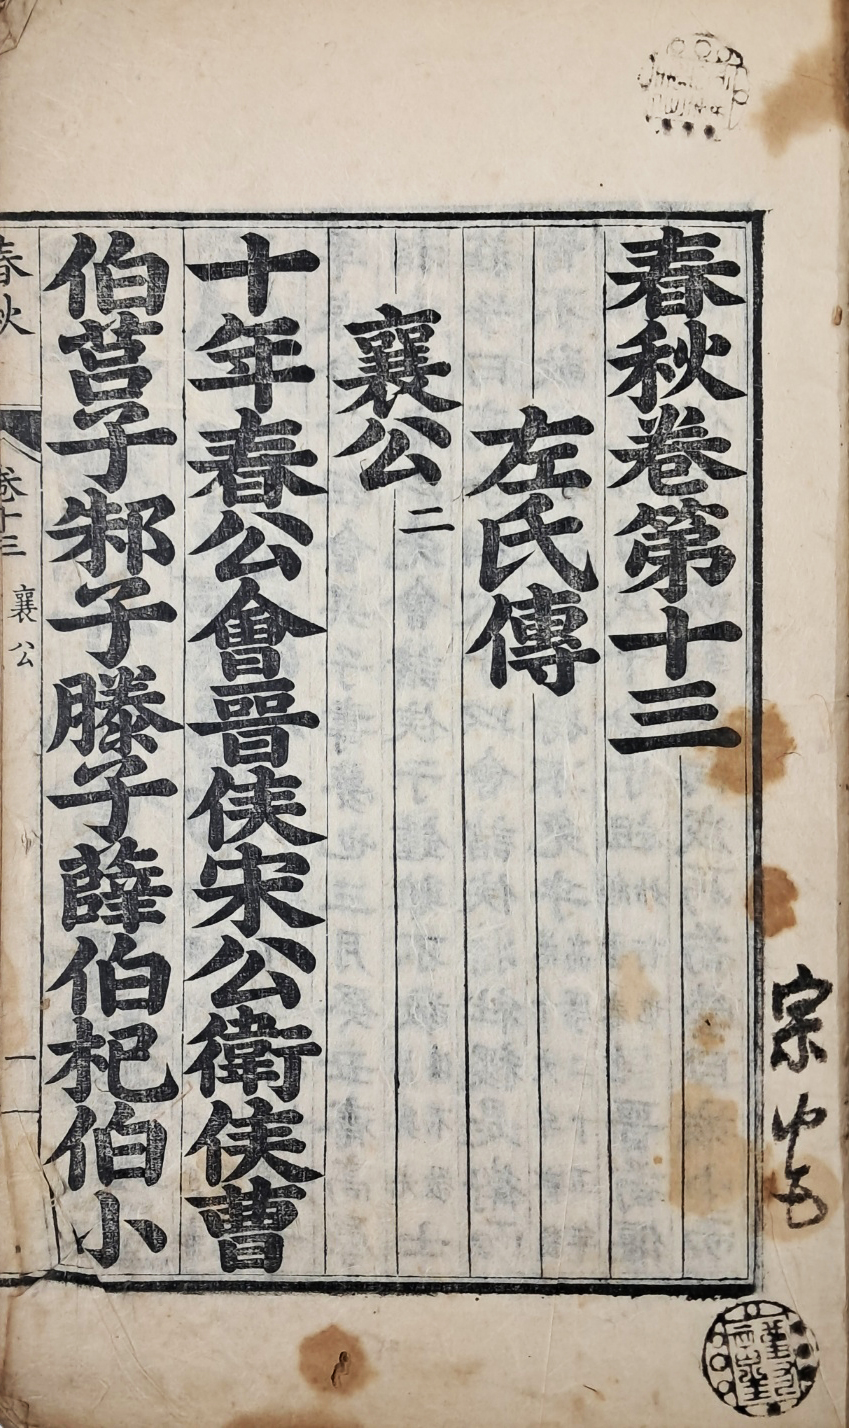 春秋卷第十三
左氏傳
襄公 二
十年春公會晉侯宋公衛侯曹
伯莒子邾子滕子薛伯杞伯小
春秋
卷十三
襄公
一
宗